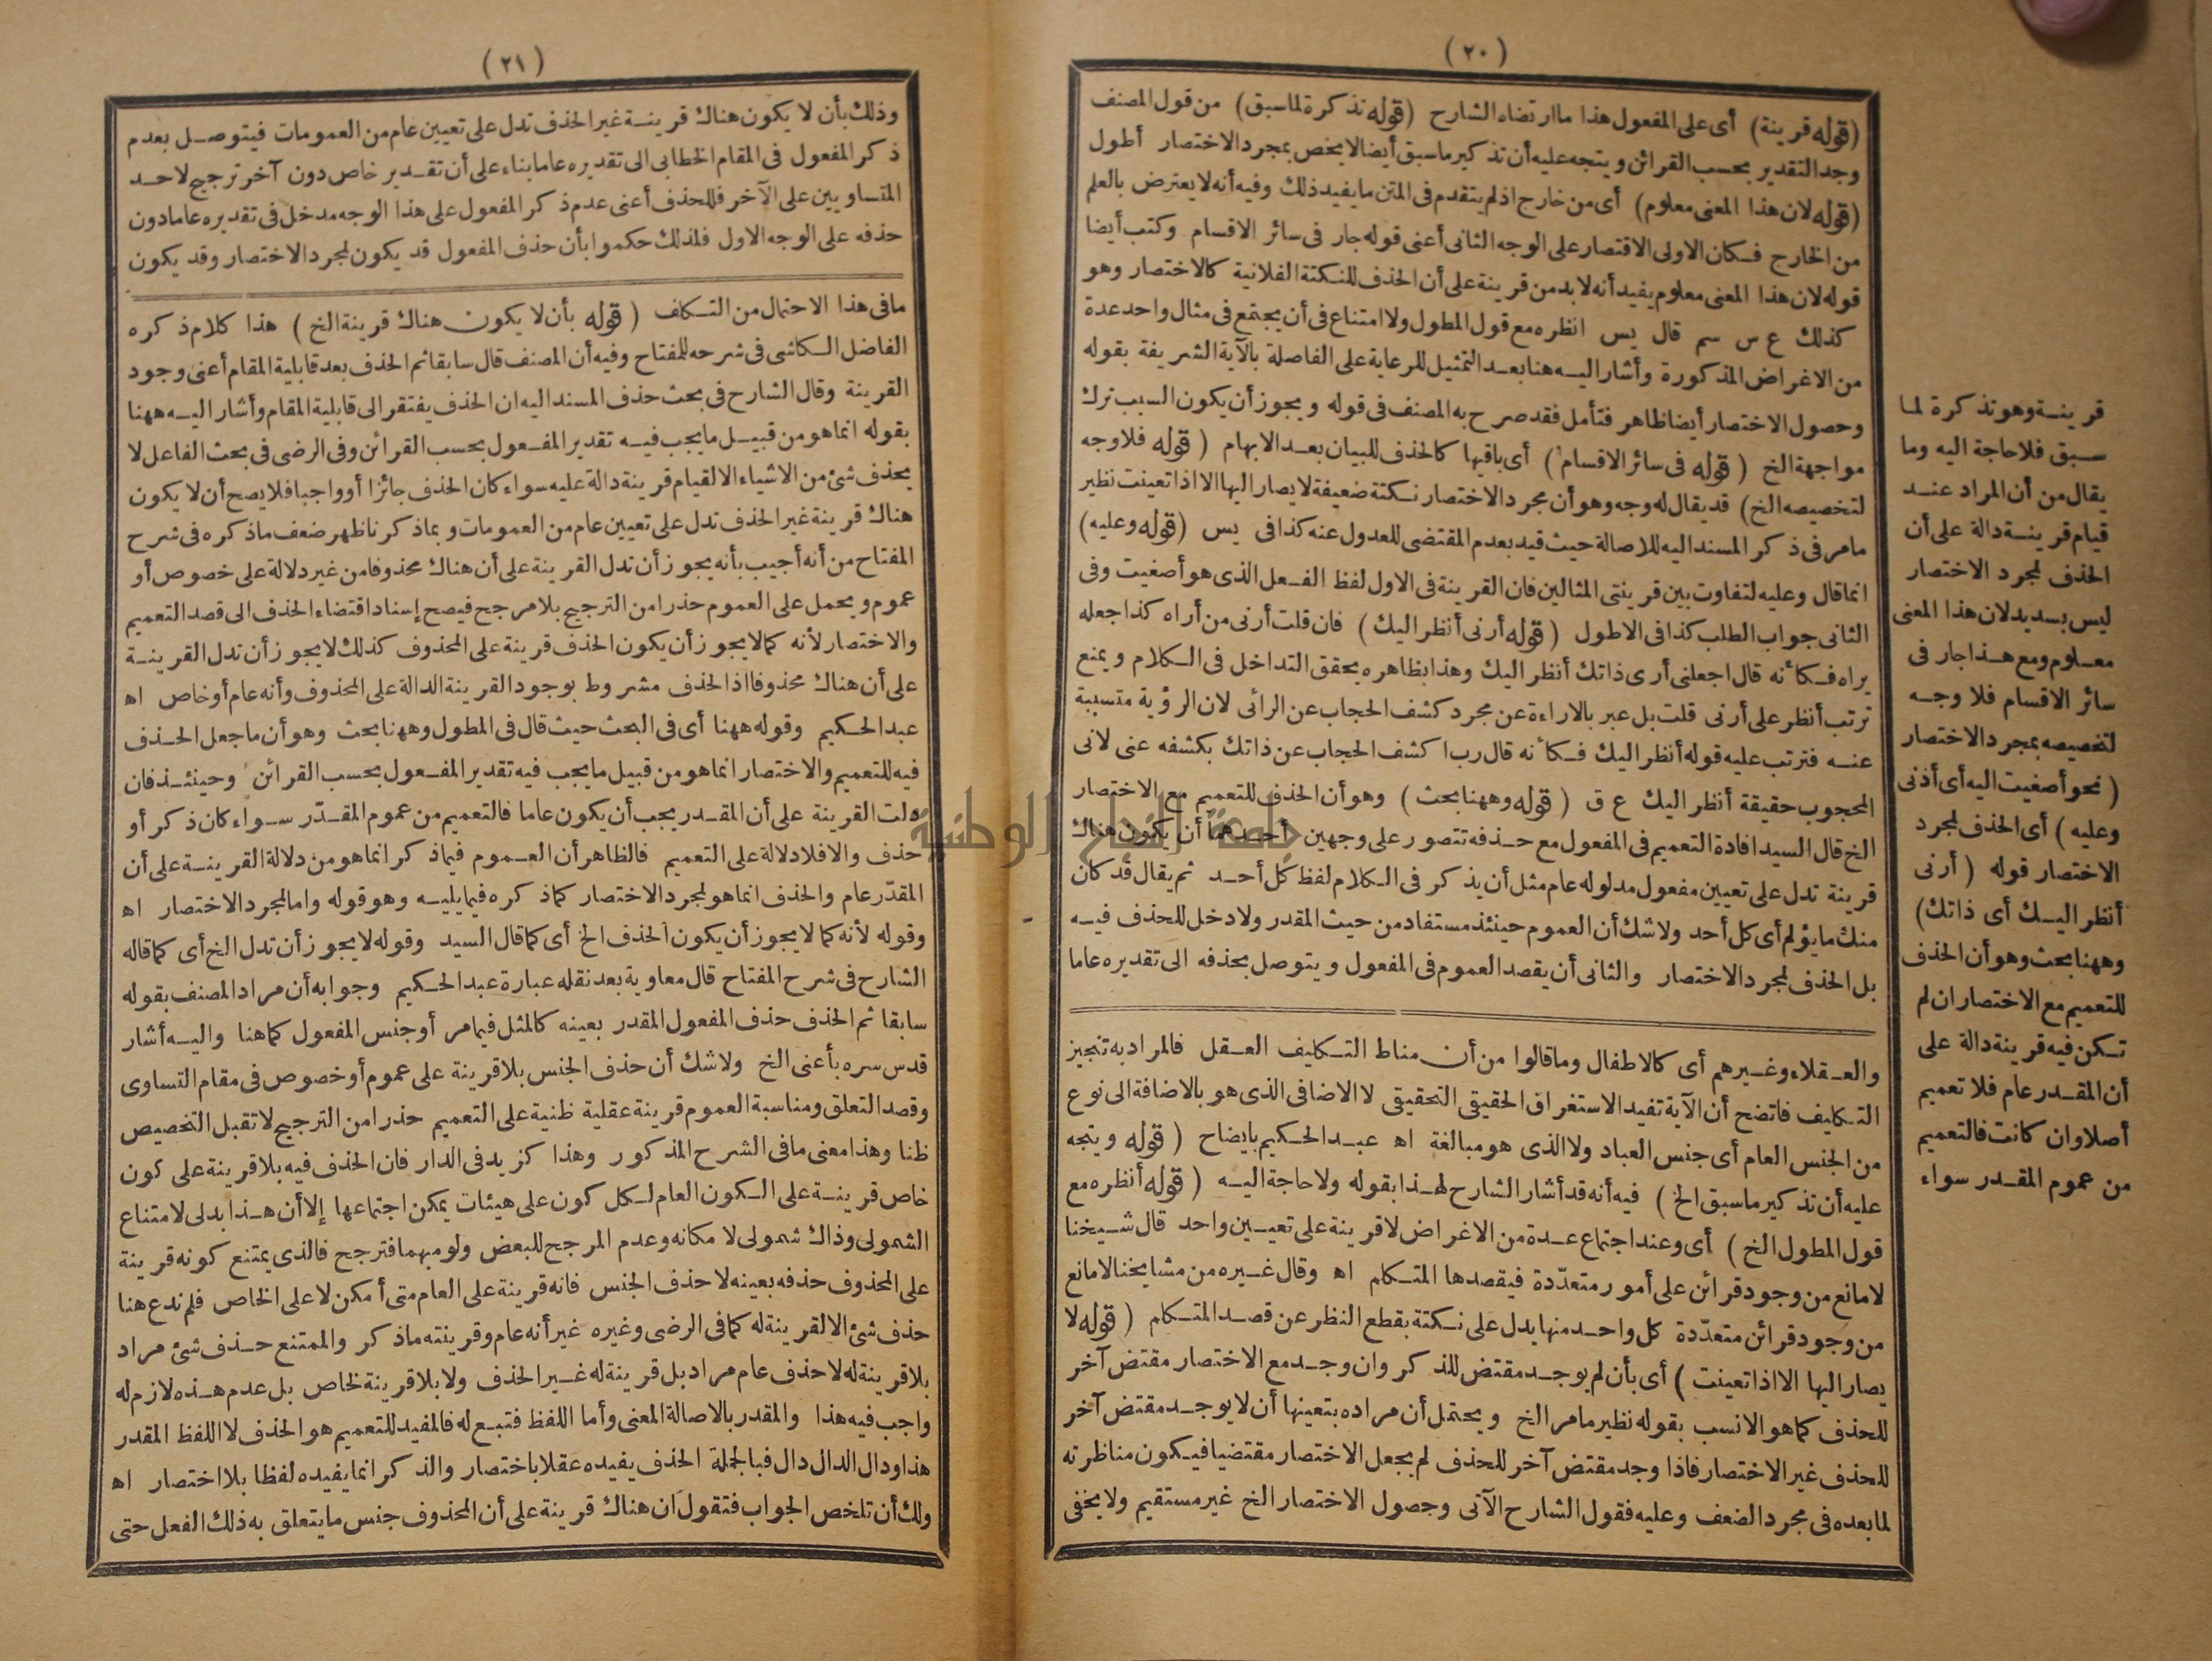 (٢٠)
(قوله قرينة) أى على المفعول هذا ما ارتضاه الشارح (قوله تذكرة لما سبق) من قول المصنف
وجد التقدير بحسب القرائن ويتجه عليه أن تذكير ما سبق أيضا لا يخص بمجرد الاختصار أطول
(قوله لان هذا المعنى معلوم) أى من خارج اذ لم يتقدم فى المتن ما يفيد ذلك وفيه أنه لا يعترض بالعلم
من الخارج فكان الاولى الاقتصار على الوجه الثانى أعنى قوله جار فى سائر الاقسام وكتب أيضا
قوله لان هذا المعنى معلوم يفيد أنه لا بد من قرينة على أن الحذف للنكتة الفلانية كالاختصار وهو
كذلك ع س سم قال يس انظره مع قول المطول ولا امتناع فى أن يجتمع فى مثال واحد عدة
من الاغراض المذكورة وأشار اليه هنا بعد التمثيل للرعاية على الفاصلة بالآية الشريفة بقوله
وحصول الاختصار أيضا ظاهر فتأمل فقد صرح به المصنف فى قوله ويجوز أن يكون السبب ترك
مواجهة الخ (قوله فى سائر الاقسام) أى باقيها كالحذف للبيان بعد الابهام (قوله فلا وجه
لتخصيصه الخ) قد يقال له وجه وهو أن مجرد الاختصار نكتة ضعيفة لا يصار اليها الا اذا تعينت نظير
ما مر فى ذكر المسند اليه للاصالة حيث قيد بعدم المقتضى للعدول عنه كذا فى يس (قوله وعليه)
انما قال وعليه لتفاوت بين قرينتى المثالين فان القرينة فى الاول لفظ الفعل الذى هو أصغيت وفى
الثانى جواب الطلب كذا فى الاطول (قوله أرنى أنظر اليك) فان قلت أرنى من أراه كذا جعله
يراه فكأنه قال اجعلنى أرى ذاتك أنظر اليك وهذا بظاهره يحقق التداخل فى الكلام ويمنع
ترتب أنظر على أرنى قلت بل عبر بالاراءة عن مجرد كشف الحجاب عن الرائى لان الرؤية متسببة
عنه فترتب عليه قوله أنظر اليك فكأنه قال رب اكشف الحجاب عن ذاتك بكشفه عنى لانى
المحجوب حقيقة أنظر اليك ع ق (قوله وههنا بحث) وهو أن الحذف للتعميم مع الاختصار
الخ قال السيد افادة التعميم فى المفعول مع حذفه تتصور على وجهين أحدهما أن يكون هناك
قرينة تدل على تعيين مفعول مدلوله عام مثل أن يذكر فى الكلام لفظ كل أحد ثم يقال قد كان
منك ما يؤلم أى كل أحد ولا شك أن العموم حينئذ مستفاد من حيث المقدر ولا دخل للحذف فيه
بل الحذف لمجرد الاختصار والثانى أن يقصد العموم فى المفعول ويتوصل بحذفه الى تقديره عاما
والعقلاء وغيرهم أى كالاطفال وما قالوا من أن مناط التكليف العقل فالمراد به تنجيز
التكليف فاتضح أن الآية تفيد الاستغراق الحقيقى التحقيقى لا الاضافى الذى هو بالاضافة الى نوع
من الجنس العام أى جنس العباد ولا الذى هو مبالغة اه عبد الحكيم بايضاح (قوله ويتجه
عليه أن تذكير ما سبق الخ) فيه أنه قد أشار الشارح لهذا بقوله ولا حاجة اليه (قوله أنظره مع
قول المطول الخ) أى وعند اجتماع عدة من الاغراض لا قرينة على تعيين واحد قال شيخنا
لا مانع من وجود قرائن على أمور متعدّدة فيقصدها المتكلم اه وقال غيره من مشايخنا لا مانع
من وجود قرائن متعدّدة كل واحد منها يدل على نكتة بقطع النظر عن قصد المتكلم (قوله لا
يصار اليها الا اذا تعينت) أى بأن لم يوجد مقتض للذكر وان وجد مع الاختصار مقتض آخر
للحذف كما هو الانسب بقوله نظير ما مر الخ ويحتمل أن مراده بتعينها أن لا يوجد مقتض آخر
للحذف غير الاختصار فاذا وجد مقتض آخر للحذف لم يجعل الاختصار مقتضيا فيكون مناظرته
لما بعده فى مجرد الضعف وعليه فقول الشارح الآتى وحصول الاختصار الخ غير مستقيم ولا يخفى
قرينة وهو تذكرة لما
سبق فلا حاجة اليه وما
يقال من أن المراد عند
قيام قرينة دالة على أن
الحذف لمجرد الاختصار
ليس بسديد لان هذا المعنى
معلوم ومع هذا جار فى
سائر الاقسام فلا وجه
لتخصيصه بمجرد الاختصار
(نحو أصغيت اليه أى أذنى
وعليه) أى الحذف لمجرد
الاختصار قوله (أرنى
أنظر اليك أى ذاتك)
وههنا بحث وهو أن الحذف
للتعميم مع الاختصار ان لم
تكن فيه قرينة دالة على
أن المقدر عام فلا تعميم
أصلا وان كانت فالتعميم
من عموم المقدر سواء
(٢١)
وذلك بأن لا يكون هناك قرينة غير الحذف تدل على تعيين عام من العمومات فيتوصل بعدم
ذكر المفعول فى المقام الخطابى الى تقديره عاما بناء على أن تقدير خاص دون آخر ترجيح لاحد
المتساويين على الآخر فللحذف أعنى عدم ذكر المفعول على هذا الوجه مدخل فى تقديره عاما دون
حذفه على الوجه الاول فلذلك حكموا بأن حذف المفعول قد يكون لمجرد الاختصار وقد يكون
ما فى هذا الاحتمال من التكلف (قوله بأن لا يكون هناك قرينة الخ) هذا كلام ذكره
الفاضل الكاشى فى شرحه للمفتاح وفيه أن المصنف قال سابقا ثم الحذف بعد قابلية المقام أعنى وجود
القرينة وقال الشارح فى بحث حذف المسند اليه ان الحذف يفتقر الى قابلية المقام وأشار اليه ههنا
بقوله انما هو من قبيل ما يجب فيه تقدير المفعول بحسب القرائن وفى الرضى فى بحث الفاعل لا
يحذف شئ من الاشياء الا لقيام قرينة دالة عليه سواء كان الحذف جائزا أو واجبا فلا يصح أن لا يكون
هناك قرينة غير الحذف تدل على تعيين عام من العمومات وبما ذكرنا ظهر ضعف ما ذكره فى شرح
المفتاح من أنه أجيب بأنه يجوز أن تدل القرينة على أن هناك محذوفا من غير دلالة على خصوص أو
عموم ويحمل على العموم حذرا من الترجيح بلا مرجح فيصح إسناد اقتضاء الحذف الى قصد التعميم
والاختصار لأنه كما لا يجوز أن يكون الحذف قرينة على المحذوف كذلك لا يجوز أن تدل القرينة
على أن هناك محذوفا اذ الحذف مشروط بوجود القرينة الدالة على المحذوف وأنه عام أو خاص اه
عبد الحكيم وقوله ههنا أى فى البحث حيث قال فى المطول وههنا بحث وهو أن ما جعل الحذف
فيه للتعميم والاختصار انما هو من قبيل ما يجب فيه تقدير المفعول بحسب القرائن وحينئذ فان
دلت القرينة على أن المقدر يجب أن يكون عاما فالتعميم من عموم المقدّر سواء كان ذكر أو
حذف والا فلا دلالة على التعميم فالظاهر أن العموم فيما ذكر انما هو من دلالة القرينة على أن
المقدّر عام والحذف انما هو لمجرد الاختصار كما ذكره فيما يليه وهو قوله واما لمجرد الاختصار اه
وقوله لأنه كما لا يجوز أن يكون الحذف الخ أى كما قال السيد وقوله لا يجوز أن تدل الخ أى كما قاله
الشارح فى شرح المفتاح قال معاوية بعد نقله عبارة عبد الحكيم وجوابه أن مراد المصنف بقوله
سابقا ثم الحذف حذف المفعول المقدر بعينه كالمثل فيما مر أو جنس المفعول كما هنا واليه أشار
قدس سره بأعنى الخ ولا شك أن حذف الجنس بلا قرينة على عموم أو خصوص فى مقام التساوى
وقصد التعلق ومناسبة العموم قرينة عقلية ظنية على التعميم حذرا من الترجيح لا تقبل التخصيص
ظنا وهذا معنى ما فى الشرح المذكور وهذا كزيد فى الدار فان الحذف فيه بلا قرينة على كون
خاص قرينة على الكون العام لكل كون على هيئات يمكن اجتماعها إلا أن هذا بدلى لامتناع
الشمولى وذاك شمولى لامكانه وعدم المرجح للبعض ولو مبهما فترجح فالذى يمتنع كونه قرينة
على المحذوف حذفه بعينه لا حذف الجنس فانه قرينة على العام متى أمكن لا على الخاص فلم ندع هنا
حذف شئ الا لقرينة له كما فى الرضى وغيره غير أنه عام وقرينته ما ذكر والممتنع حذف شئ مراد
بلا قرينة له لا حذف عام مراد بل قرينة له غير الحذف ولا بلا قرينة لخاص بل عدم هذه لازم له
واجب فيه هذا والمقدر بالاصالة المعنى وأما اللفظ فتبع له فالمفيد للتعميم هو الحذف لا اللفظ المقدر
هذا ودال الدال دال فبالجملة الحذف يفيده عقلا باختصار والذكر انما يفيده لفظا بلا اختصار اه
ولك أن تلخص الجواب فتقول ان هناك قرينة على أن المحذوف جنس ما يتعلق به ذلك الفعل حتى
جامعة النجاح الوطنية